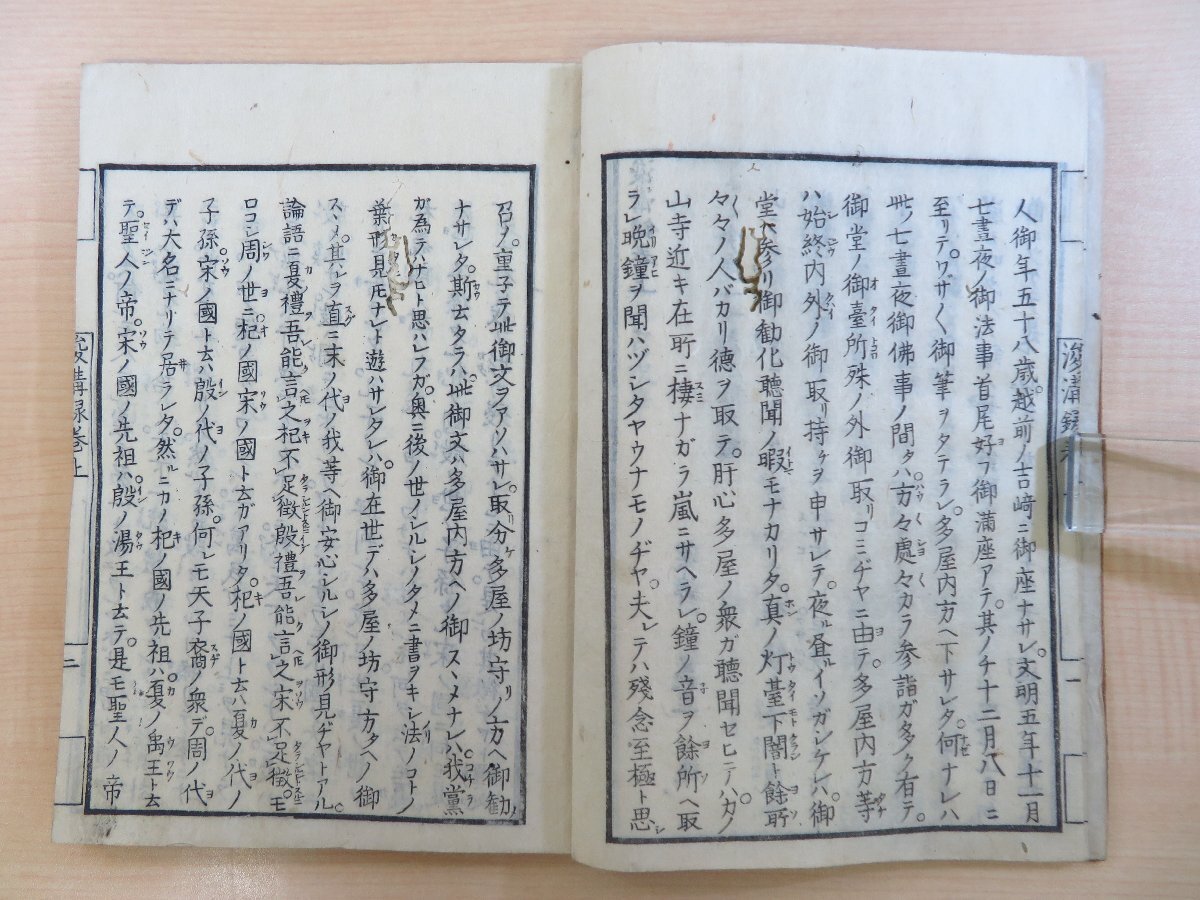 人御年五十八歳。越前ノ吉﨑ニ御座ナサレ。文明五年十一月
七晝夜ノ御法事首尾好フ御滿座アテ。其ノチ十二月八日ニ
至リテ。ワザ〳〵御筆ヲタテラレ。多屋内方ヘ下サレタ。何ナレハ
此ノ七晝夜御佛事ノ間タハ。方々處々カラ参詣ガ多ク有テ。
御堂ノ御臺所殊ノ外御取リコミヂヤニ由テ。多屋内方等
ハ始終内外ノ御取リ持ヲ申サレテ。夜ル昼ルイソガシケレハ。御
堂ヘ参リ御勸化聽聞ノ暇モナカリタ。真ノ灯臺下闇ト餘所
々々ノ人バカリ德ヲ取テ。肝心多屋ノ衆ガ聽聞セヒニハ。カノ
山寺近キ在所ニ棲ナガラ嵐ニサヘラレ。鐘ノ音ヲ餘所ヘ取
ラレ晩鐘ヲ聞ハヅシタヤウナモノヂヤ。夫レテハ殘念至極ト思
召ノ。重子テ此御文ヲアソハサレ。取リ分ケ多屋ノ坊守リノ方ヘ御勸
ナサレタ。斯云タラハ。此御文ハ多屋内方ヘノ御スヽメナレハ。我黨
ガ為テハナヒト思ハレフガ。奥ニ後ノ世ノシルシノタメニ書ヲキシ法ノコトノ
葉形見トモナレト遊ハサレタレハ。御在世デハ多屋ノ坊守方タヘノ御
スヽメ。其レヲ直ニ末ノ代ノ我等ヘ御安心シルシノ御形見ヂヤトアル。
論語ニ夏禮吾能言之杞不足徴殷禮吾能言之宋不足徴。モ
ロコシ周ノ世ニ杞ノ國宋ノ國ト云ガアリタ。杞ノ國ト云ハ夏ノ代ノ
子孫。宋ノ國ト云ハ殷ノ代ノ子孫。何レモ天子裔ノ衆デ。周ノ代
デハ大名ニナリテ居ラレタ。然ルニカノ杞ノ國ノ先祖ハ。夏ノ禹王ト云
テ。聖人ノ帝。宋ノ國ノ先祖ハ。殷ノ湯王ト云テ。是モ聖人ノ帝
講録巻上
二